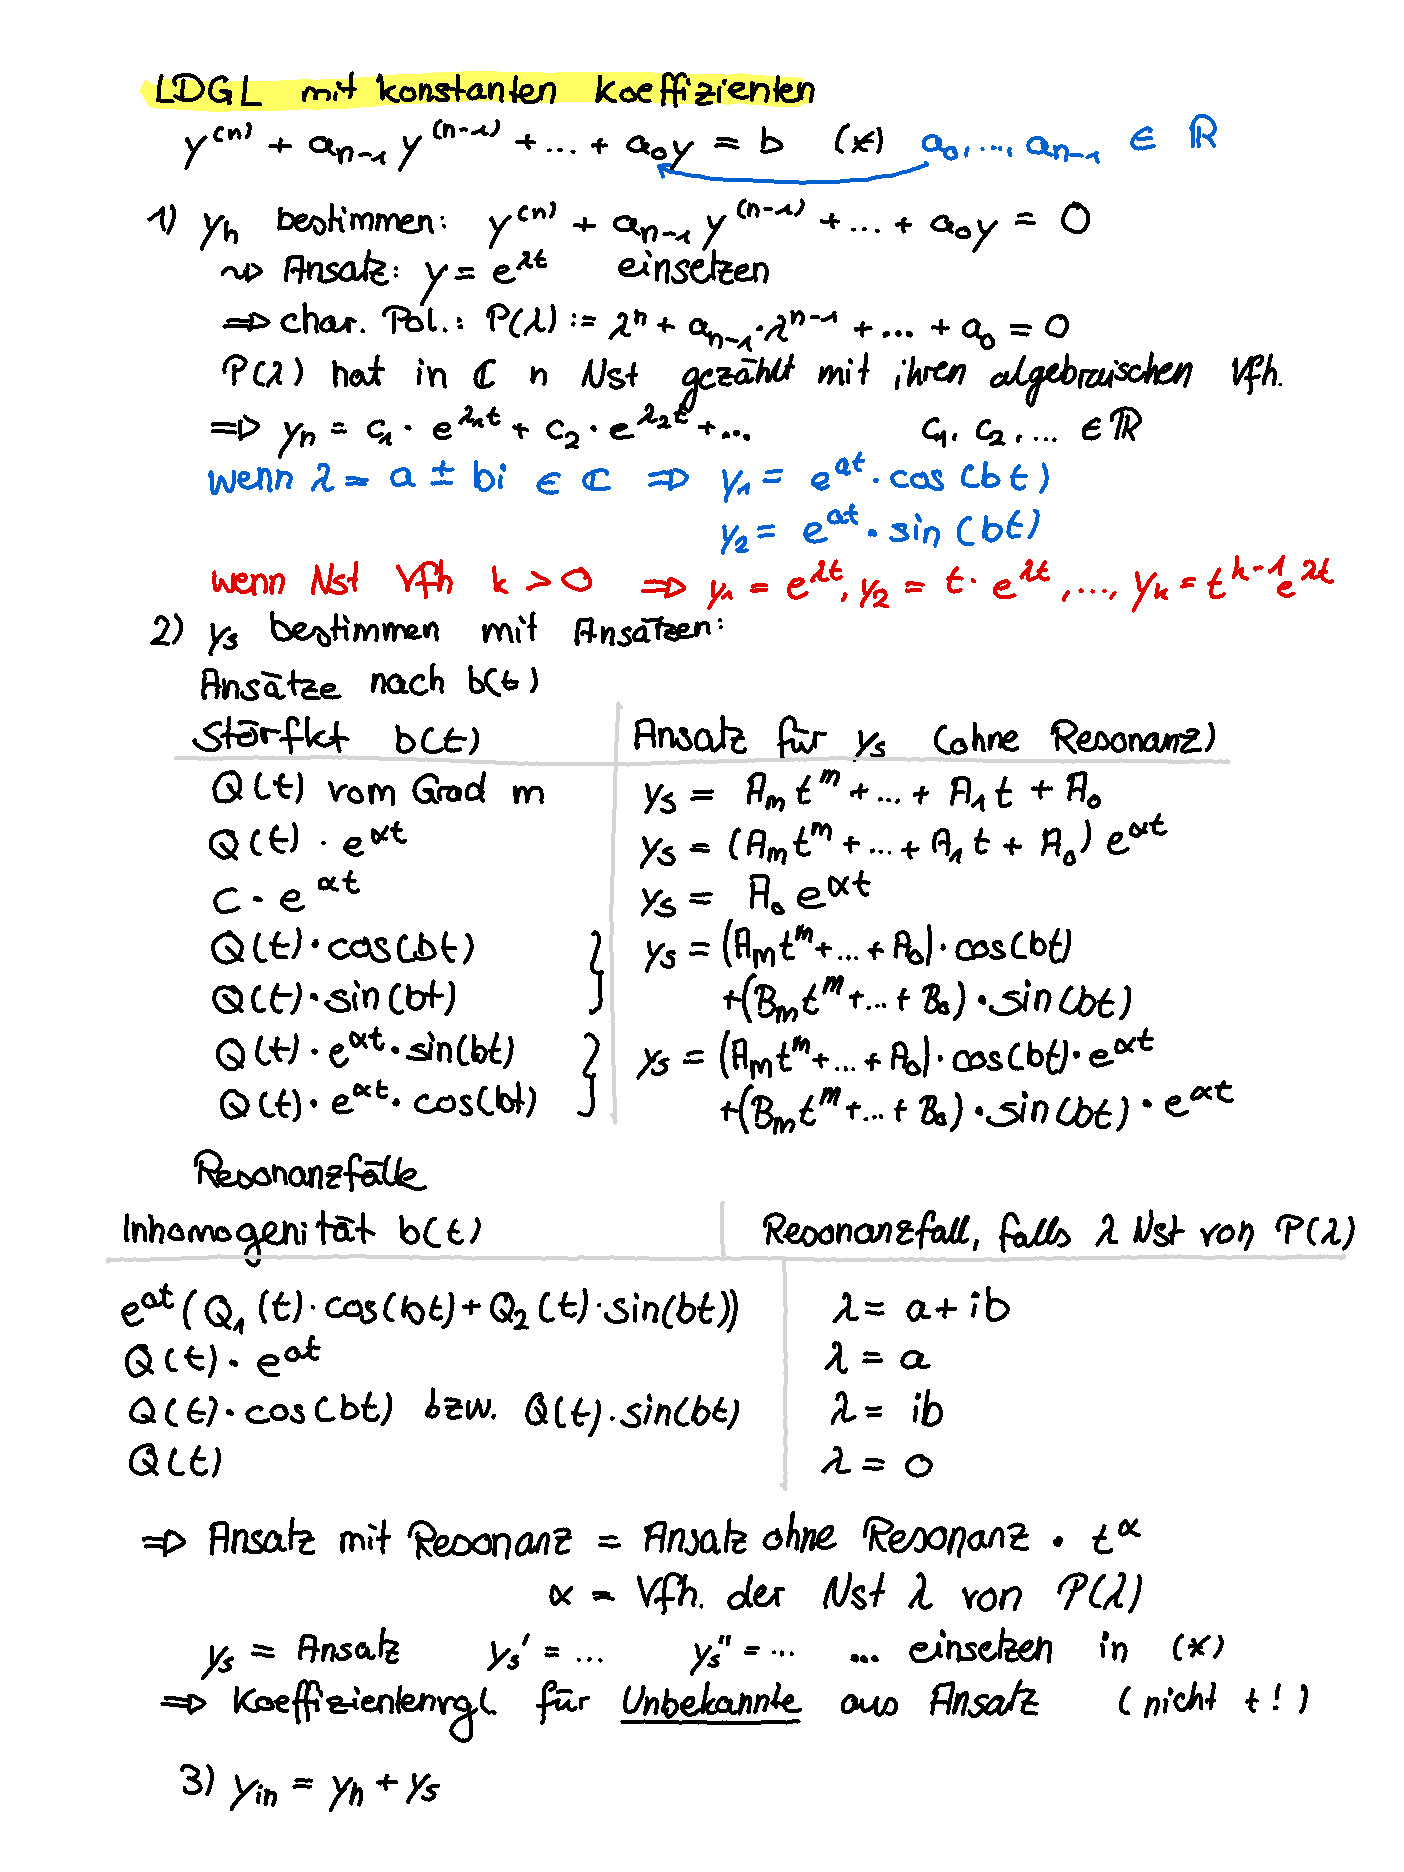 LDGL mit konstanten Koeffizienten
y⁽ⁿ⁾ + aₙ₋₁ y⁽ⁿ⁻¹⁾ + ... + a₀y = b (*) a₀, ..., aₙ₋₁ ∈ ℝ
1) yₕ bestimmen: y⁽ⁿ⁾ + aₙ₋₁ y⁽ⁿ⁻¹⁾ + ... + a₀y = 0
⇝ Ansatz: y = e^{λt} einsetzen
⇒ char. Pol.: P(λ) := λⁿ + aₙ₋₁·λⁿ⁻¹ + ... + a₀ = 0
P(λ) hat in ℂ n Nst gezählt mit ihren algebraischen Vfh.
⇒ yₕ = c₁ · e^{λ₁t} + c₂ · e^{λ₂t} + ... c₁, c₂, ... ∈ ℝ
wenn λ = a ± bi ∈ ℂ ⇒ y₁ = e^{at} · cos(bt)
y₂ = e^{at} · sin(bt)
wenn Nst Vfh k > 0 ⇒ y₁ = e^{λt}, y₂ = t · e^{λt}, ..., yₖ = t^{k-1} e^{λt}
2) yₛ bestimmen mit Ansätzen:
Ansätze nach b(t)
Störfkt b(t) Ansatz für yₛ (ohne Resonanz)
Q(t) vom Grad m yₛ = Aₘ tᵐ + ... + A₁ t + A₀
Q(t) · e^{αt} yₛ = (Aₘ tᵐ + ... + A₁ t + A₀) e^{αt}
C · e^{αt} yₛ = A₀ e^{αt}
Q(t) · cos(bt) } yₛ = (Aₘ tᵐ + ... + A₀) · cos(bt)
Q(t) · sin(bt) +(Bₘ tᵐ + ... + B₀) · sin(bt)
Q(t) · e^{αt} · sin(bt) } yₛ = (Aₘ tᵐ + ... + A₀) · cos(bt) · e^{αt}
Q(t) · e^{αt} · cos(bt) +(Bₘ tᵐ + ... + B₀) · sin(bt) · e^{αt}
Resonanzfälle
Inhomogenität b(t) Resonanzfall, falls λ Nst von P(λ)
e^{at} (Q₁(t) · cos(bt) + Q₂(t) · sin(bt)) λ = a + ib
Q(t) · e^{at} λ = a
Q(t) · cos(bt) bzw. Q(t) · sin(bt) λ = ib
Q(t) λ = 0
⇒ Ansatz mit Resonanz = Ansatz ohne Resonanz · t^α
α = Vfh. der Nst λ von P(λ)
yₛ = Ansatz yₛ' = ... yₛ'' = ... ... einsetzen in (*)
⇒ Koeffizientenvgl. für Unbekannte aus Ansatz (nicht t!)
3) yᵢₙ = yₕ + yₛ